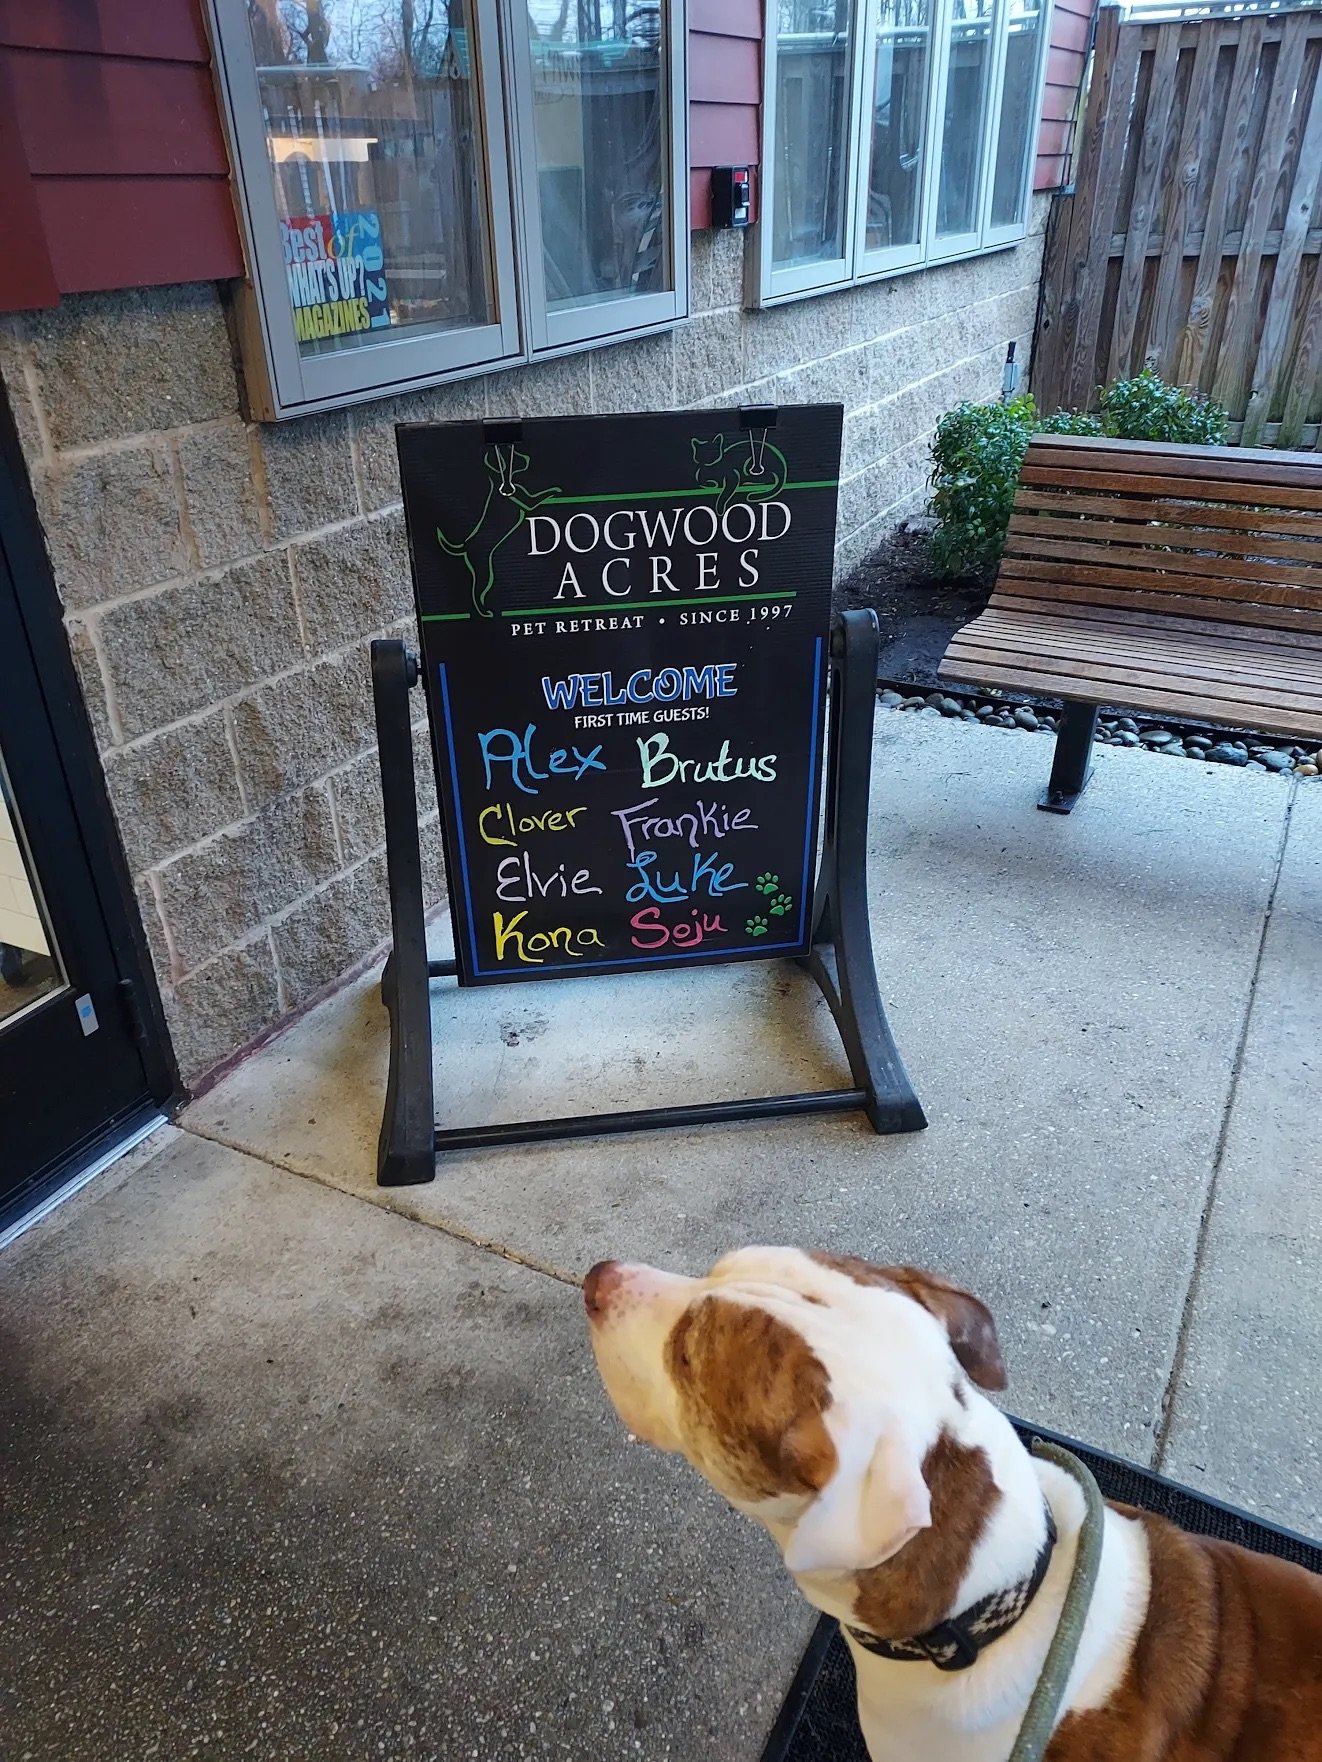 Best of
WHAT'S UP?
MAGAZINES
2021
DOGWOOD
ACRES
PET RETREAT • SINCE 1997
WELCOME
FIRST TIME GUESTS!
Alex Brutus
Clover Frankie
Elvie Luke
Kona Soju